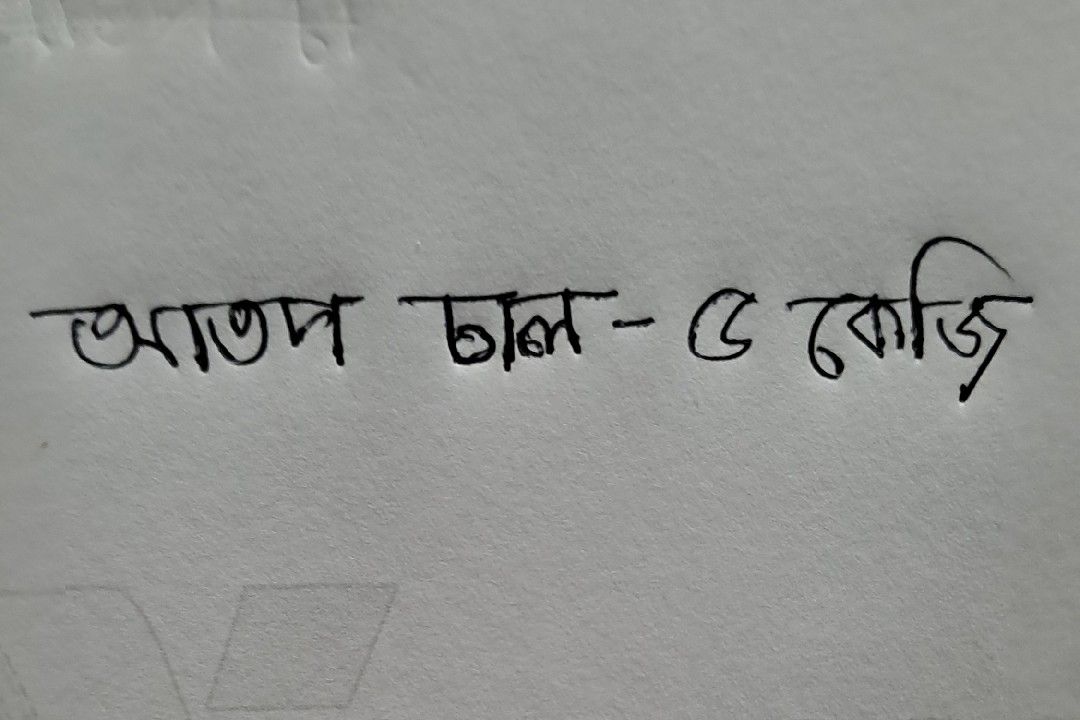 আতপ চাল - ৫ কেজি